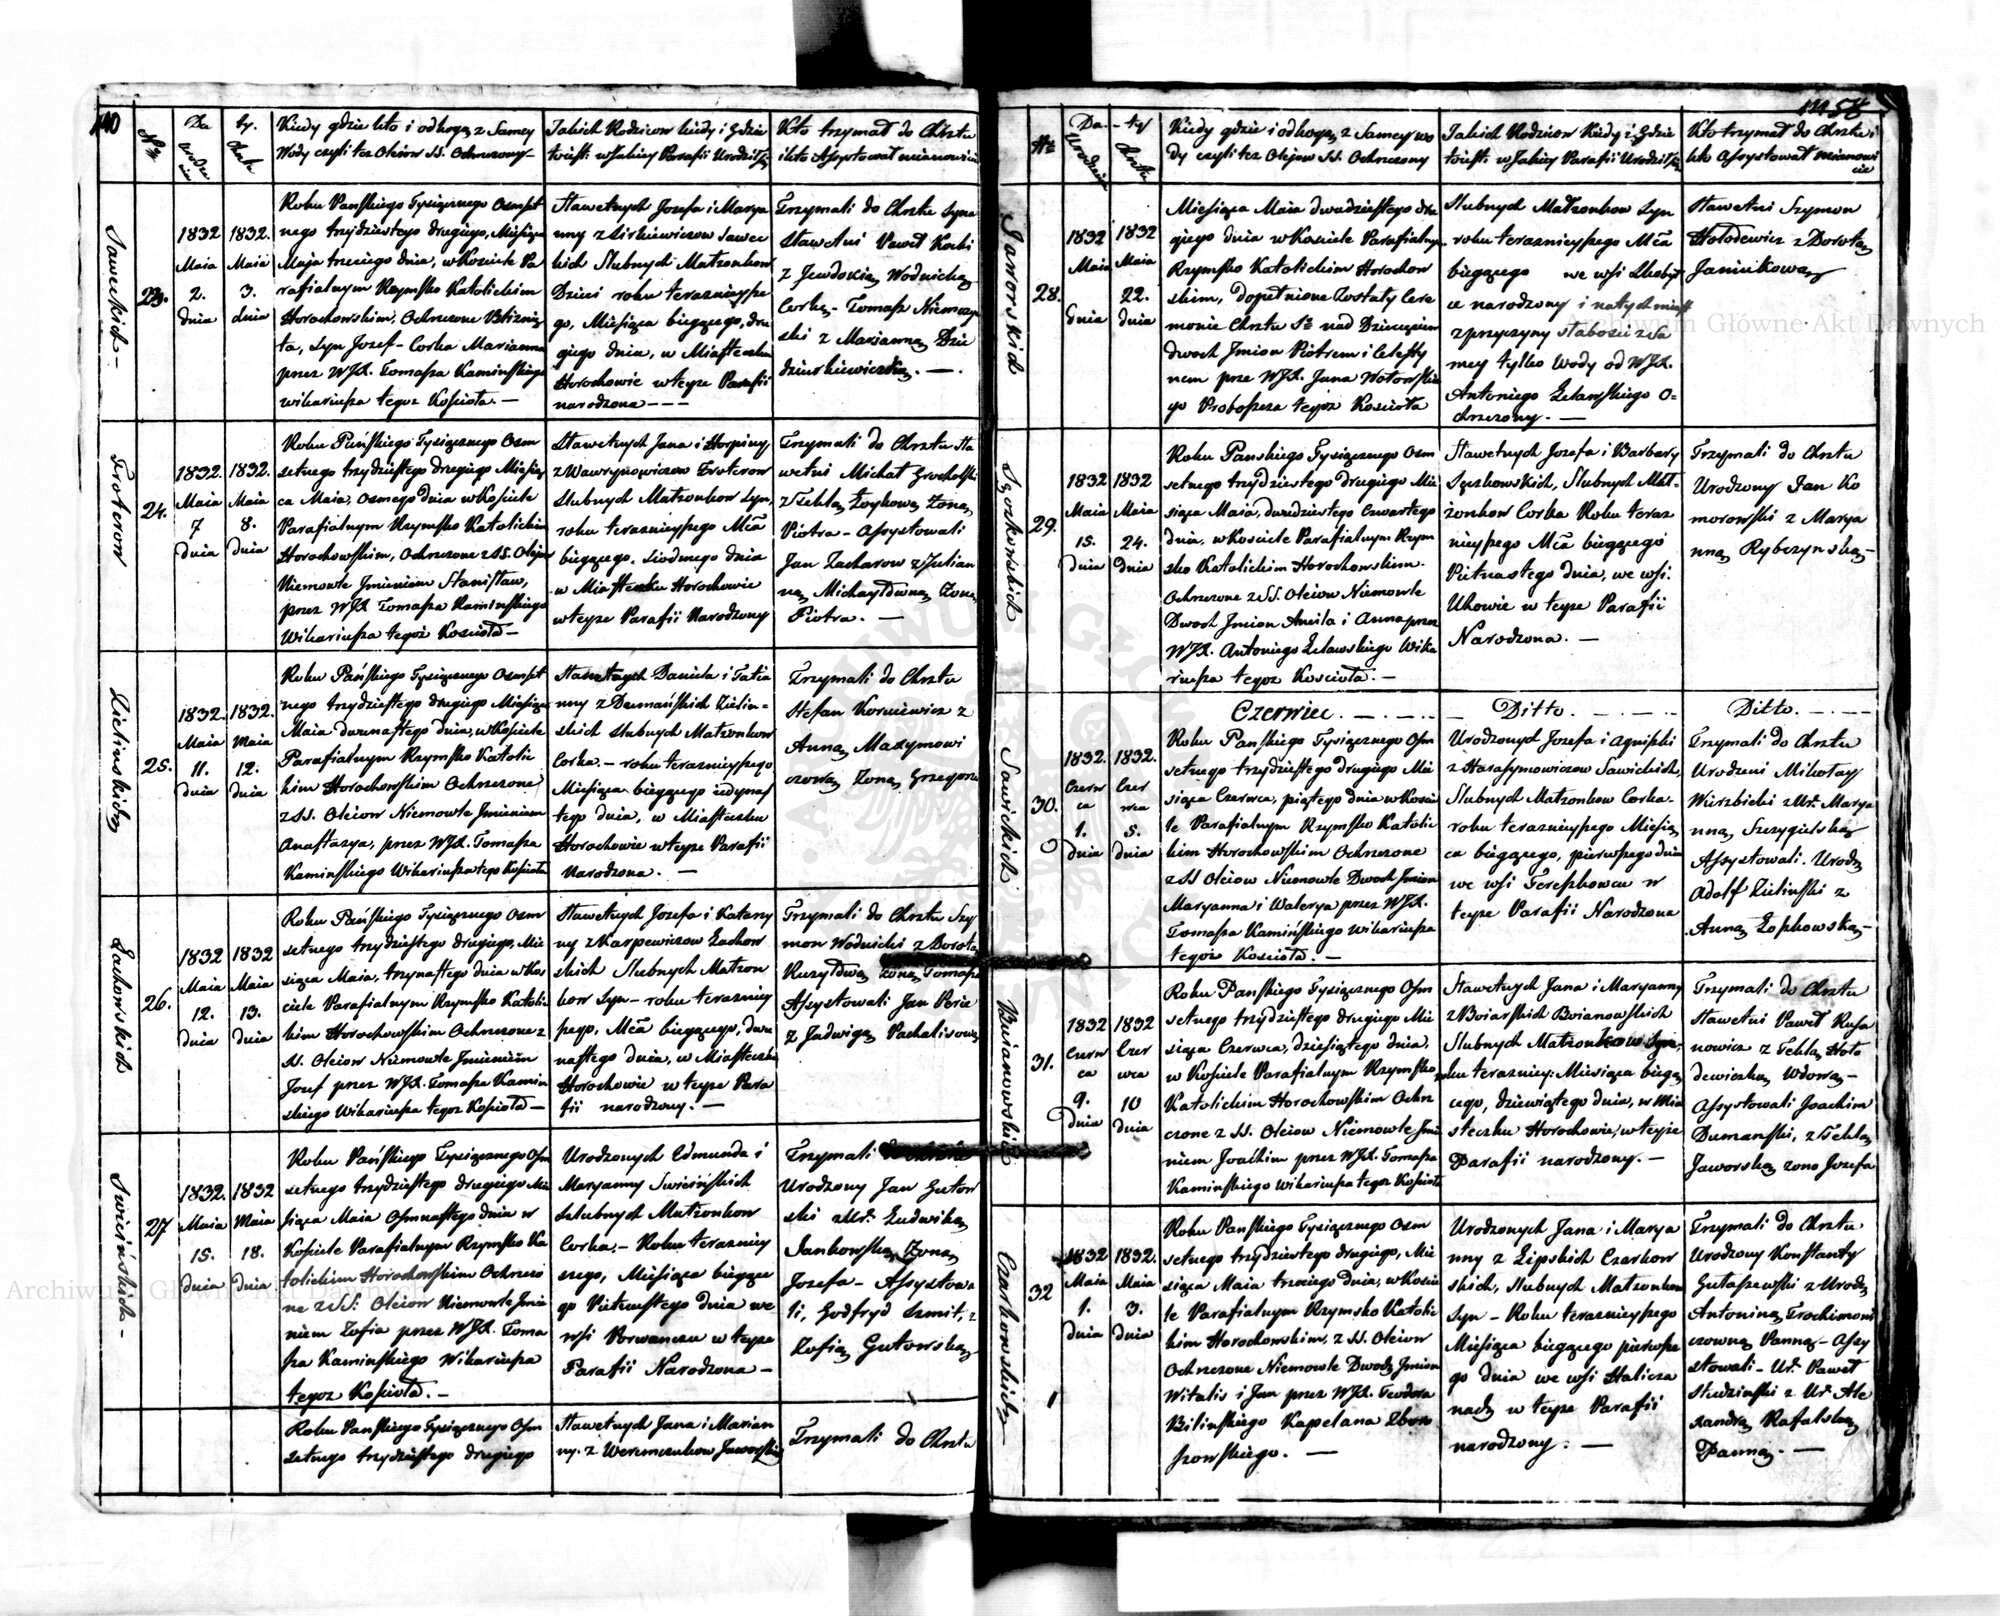 140
Nr
Da
ty.
Kiedy gdzie kto i od kogo, z Samey
Wody czyli tez Oleiow SS. Ochrzczony
Jakich Rodzicow kiedy i Gdzie
to iest: w Jakiey Parafii Urodził się
Kto trzymał do Chrztu
i kto Assystował mianowicie
Sawickich –
23.
1832
Maia
2.
dnia
1832.
Maia
3.
dnia
Roku Pańskiego Tysiącznego Osmset
nego trzydziestego drugiego, Miesiąca
Maja trzeciego dnia, w Kosciele Pa
rafialnym Rzymsko Katolickim
Horochowskim, Ochrzczone Bliźnię
ta, Syn Jozef – Corka Marianna
przez WJX. Tomasza Kaminskiego
wikariusza tegoż Kosciola. –
Sławetnych Jozefa i Marya
nny z Sirkiewiczow Sawec
kich Slubnych Małzonkow
Dzieci roku teraznieysze
go, Miesiąca bieżącego, dru
giego dnia, w Miasteczku
Horochowie w teyze Parafii
narodzona – – –
Trzymali do Chrztu syna
Sławetni Paweł
z Jewdokią Wodnicką
Corkę – Tomasz Niemczy
ski z Marianną Dzie
dziurkiewiczką. –
Froterow
24.
1832.
Maia
7
dnia
1832.
Maia
8.
dnia
Roku Pańskiego Tysiącznego Osm
setnego trzydziestego drugiego Miesią
ca Maia, Osmego dnia w Kosciele
Parafialnym Rzymsko Katolickim
Horochowskim, Ochrzczone z SS. Oleiow
Niemowle Jmieniem Stanisław,
przez WJX Tomasza Kaminskiego
Wikariusza tegoż Kosciola –
Sławetnych Jana i Horpiny
z Wawrynowiczow Froterow
Slubnych Matzonkow Syn,
roku teraznieyszego Mca
bieżącego, Siodmego dnia
w Miasteczku Horochowie
w teyze Parafii Narodzony
Trzymali do Chrztu Sła
wetni Michał Grocholski
z Teklą Zoykową Zoną
Piotra – Assystowali
Jan Zacharow z Julian
ną Michayłowną Zoną
Piotra. –
Zielinskich
25.
1832.
Maia
11.
dnia
1832.
Maia
12.
dnia
Roku Pańskiego Tysiącznego Osmset
nego trzydziestego drugiego Miesiąca
Maia dwunastego dnia, w Kosciele
Parafialnym Rzymsko Katolic
kim Horochowskim Ochrzczone
z SS. Oleiow Niemowle Jmieniem
Anastazya, przez WJX. Tomasza
Kaminskiego Wikariusza tego Kosciola
Sławetnych Daniela i Tatia
nny z Dumańskich Zielin-
skich slubnych Matzonkow
Corka. – roku teraznieyszego
Miesiąca bieżącego iedynas
tego dnia, w Miasteczku
Horochowie w teyze Parafii
Narodzona. –
Trzymali do Chrztu
Stefan Korniewicz z
Anną Maxymowi
czową Zoną Grzegorza
Zachowskich
26.
1832
Maia
12.
dnia
1832
Maia
13.
dnia
Roku Pańskiego Tysiącznego Osm
setnego trzydziestego drugiego, Mie
siąca Maia, trzynastego dnia w Kos
ciele Parafialnym Rzymsko Katolic
kim Horochowskim Ochrzczone z
SS. Oleiow Niemowle Jmieniem
Jozef przez WJX. Tomasza Kamin
skiego Wikariusza tegoz Kosciola –
Sławetnych Jozefa i Katarzy
ny z Karpewiczow Zachow
skich Slubnych Matzon
kow Syn – roku terazniey
szego, Mca bieżącego, dwu
nastego dnia, w Miasteczku
Horochowie w teyze Para
fii narodzony. –
Trzymali do Chrztu Szy
mon Wodnicki z Dorotą
żoną Tomasza
Assystowali Jan
z Jadwigą
Swiecińskich –
27
1832.
Maia
15.
dnia
1832
Maia
18.
dnia
Roku Pańskiego Tysiącznego Osm
setnego trzydziestego drugiego Mie
siąca Maia Osmnastego dnia w
Kosciele Parafialnym Rzymsko Ka
tolickim Horochowskim Ochrzczo
ne z SS: Oleiow Niemowle Jmie
niem Zofia przez WJX. Toma
sza Kaminskiego Wikariusza
tegoz Kosciola. –
Urodzonych Edmunda i
Maryanny Swiecińskich
szlubnych Matzonkow
Corka. – Roku terazniey
szego, Miesiąca bieżące
go Pietnastego dnia we
wsi Porwanczu w teyze
Parafii Narodzona –
Trzymali
Urodzony Jan Gutow
ski z Ur. Ludwiką
Jankowską Zoną
Jozefa – Assystowa
li, Godfryd Szmit, z
Zofią Gutowską
Roku Pańskiego Tysiącznego Osm
setnego trzydziestego drugiego
Sławetnych Jana i Marian
ny z Weremczukow Jaworskich
Trzymali do Chrztu
Nr
Da - ty
Urodzenia
Chrztu
Kiedy gdzie i od kogo, z Samey wo
dy czyli tez Olejow SS. Ochrzczony
Jakich Rodzicow Kiedy i Gdzie
to iest: w Jakiey Parafii Urodził się
Kto trzymał do Chrztu i
kto Assystował mianowi
cie
Jaworskich
28.
1832
Maia
dnia
1832
Maia
22.
dnia
Miesiąca Maia dwudziestego dru
giego dnia w Kosciele Parafialnym
Rzymsko Katolickim Horochow
skim, dopełnione Zostały Cere
monie Chrztu S° nad Dziecięciem
dwoch Jmion Piotrem i Celesty
nem prze WJX. Jana Wotowskie
go Proboszcza tegoz Kosciola
Slubnych Matzonkow Syn
roku teraznieyszego Mca
bieżącego we wsi
narodzony i natychmiast
z przyczyny słabosci z Sa
mey tylko Wody od WJX.
Antoniego Zelawskiego O-
chrzczony. –
Sławetni Szymon
Hołodewicz z Dorotą
Janiukową
Sączkowskich
29.
1832
Maia
15.
dnia
1832
Maia
24.
dnia
Roku Pańskiego Tysiącznego Osm
setnego trzydziestego drugiego Mie
siąca Maia, dwudziestego Czwartego
dnia, w Kosciele Parafialnym Rzym
sko Katolickim Horochowskim.
Ochrzczone z SS. Oleiow Niemowle
Dwoch Jmion Aniela i Anna przez
WJX. Antoniego Zelawskiego Wika
riusza tegoz Kosciola. –
Sławetnych Jozefa i Barbary
Sączkowskich, Slubnych Mat-
zonkow Corka Roku teraz
nieyszego Mca bieżącego
Pietnastego dnia, we wsi
Uhowie w teyze Parafii
Narodzona. –
Trzymali do Chrztu
Urodzony Jan Ko
morowski z Marya
nną Rybczynską –
Czerwiec. – . – . –
– Ditto. – . – . –
Ditto. – . –
Sawickich
30.
1832.
Czerw
ca
1.
dnia
1832.
Czer
wca
5.
dnia
Roku Pańskiego Tysiącznego Osm
setnego trzydziestego drugiego Mie
siąca Czerwca, piątego dnia w Koscie
le Parafialnym Rzymsko Katolic
kim Horochowskim Ochrzczone
z SS Oleiow Niemowle Dwoch Jmion
Maryanna i Walerya przez WJX.
Tomasza Kamińskiego Wikariusza
tegoz Kosciola. –
Urodzonych Jozefa i Agniszki
z Harasymowiczow Sawickich,
Slubnych Matzonkow Corka.
roku teraznieyszego Miesią
ca bieżącego, pierwszego dnia
we wsi Tereszkowcu w
teyze Parafii Narodzona
Trzymali do Chrztu
Urodzeni Mikołay
Wierzbicki z Ur. Marya
nną Szczygielską
Assystowali. Urodz.
Adolf Zielinski z
Anną Łopkowską –
Buianowskich
31.
1832
Czerw
ca
9.
Dnia
1832
Czer
wca
10
dnia
Roku Pańskiego Tysiącznego Osm
setnego trzydziestego drugiego Mie
siąca Czerwca, dziesiątego dnia,
w Kosciele Parafialnym Rzymsko
Katolickim Horochowskim Ochrz
czone z SS. Oleiow Niemowle Jmie
niem Joachim przez WJX. Tomasza
Kaminskiego Wikariusza tegoz Kosciola
Sławetnych Jana i Maryanny
z Boiarskich Boianowskich
Slubnych Matzonkow Syn,
roku terazniey: Miesiąca bieżą
cego, dziewiątego dnia, w Mia
steczku Horochowie, w teyze
Parafii narodzony. –
Trzymali do Chrztu
Sławetni Paweł Kasa
nowicz z Teklą Hoło
dewiczką Wdową –
Assystowali Joachim
Dumanski, z Teklą
Jaworską zoną Jozefa
Czarkowskich
32
1832
Maia
1.
dnia
1832.
Maia
3.
dnia
Roku Pańskiego Tysiącznego Osm
setnego trzydziestego drugiego, Mie
siąca Maia trzeciego dnia, w Koscie
le Parafialnym Rzymsko Katolic
kim Horochowskim, z SS. Oleiow
Ochrzczone Niemowle Dwoch Jmion
Witalis i Jan przez WJX. Teodora
Bilinskiego Kapelana Zboro
szowskiego. –
Urodzonych Jana i Marya
nny z Lipskich Czarkow
skich, slubnych Matzonkow
Syn – Roku teraznieyszego
Miesiąca bieżącego pierwsze
go dnia we wsi Halicza
nach w teyze Parafii
narodzony. –
Trzymali do Chrztu
Urodzony Konstanty
Gutaszewski z Urodz.
Antoniną Trochimowi
czowną Panną – Assy
stowali – Ur. Paweł
Studzinski z Ur. Ale
xandrą Rafalską
Panną. –
Archiwum Główne Akt Dawnych
Archiwum Główne Akt Dawnych